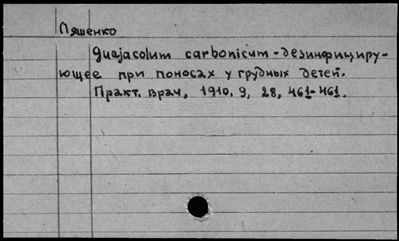 Ляшенко
Guajacolum carbonicum - дезинфициру-
ющее при поносах у грудных детей.
Практ. врач, 1910, 9, 28, 461-461.